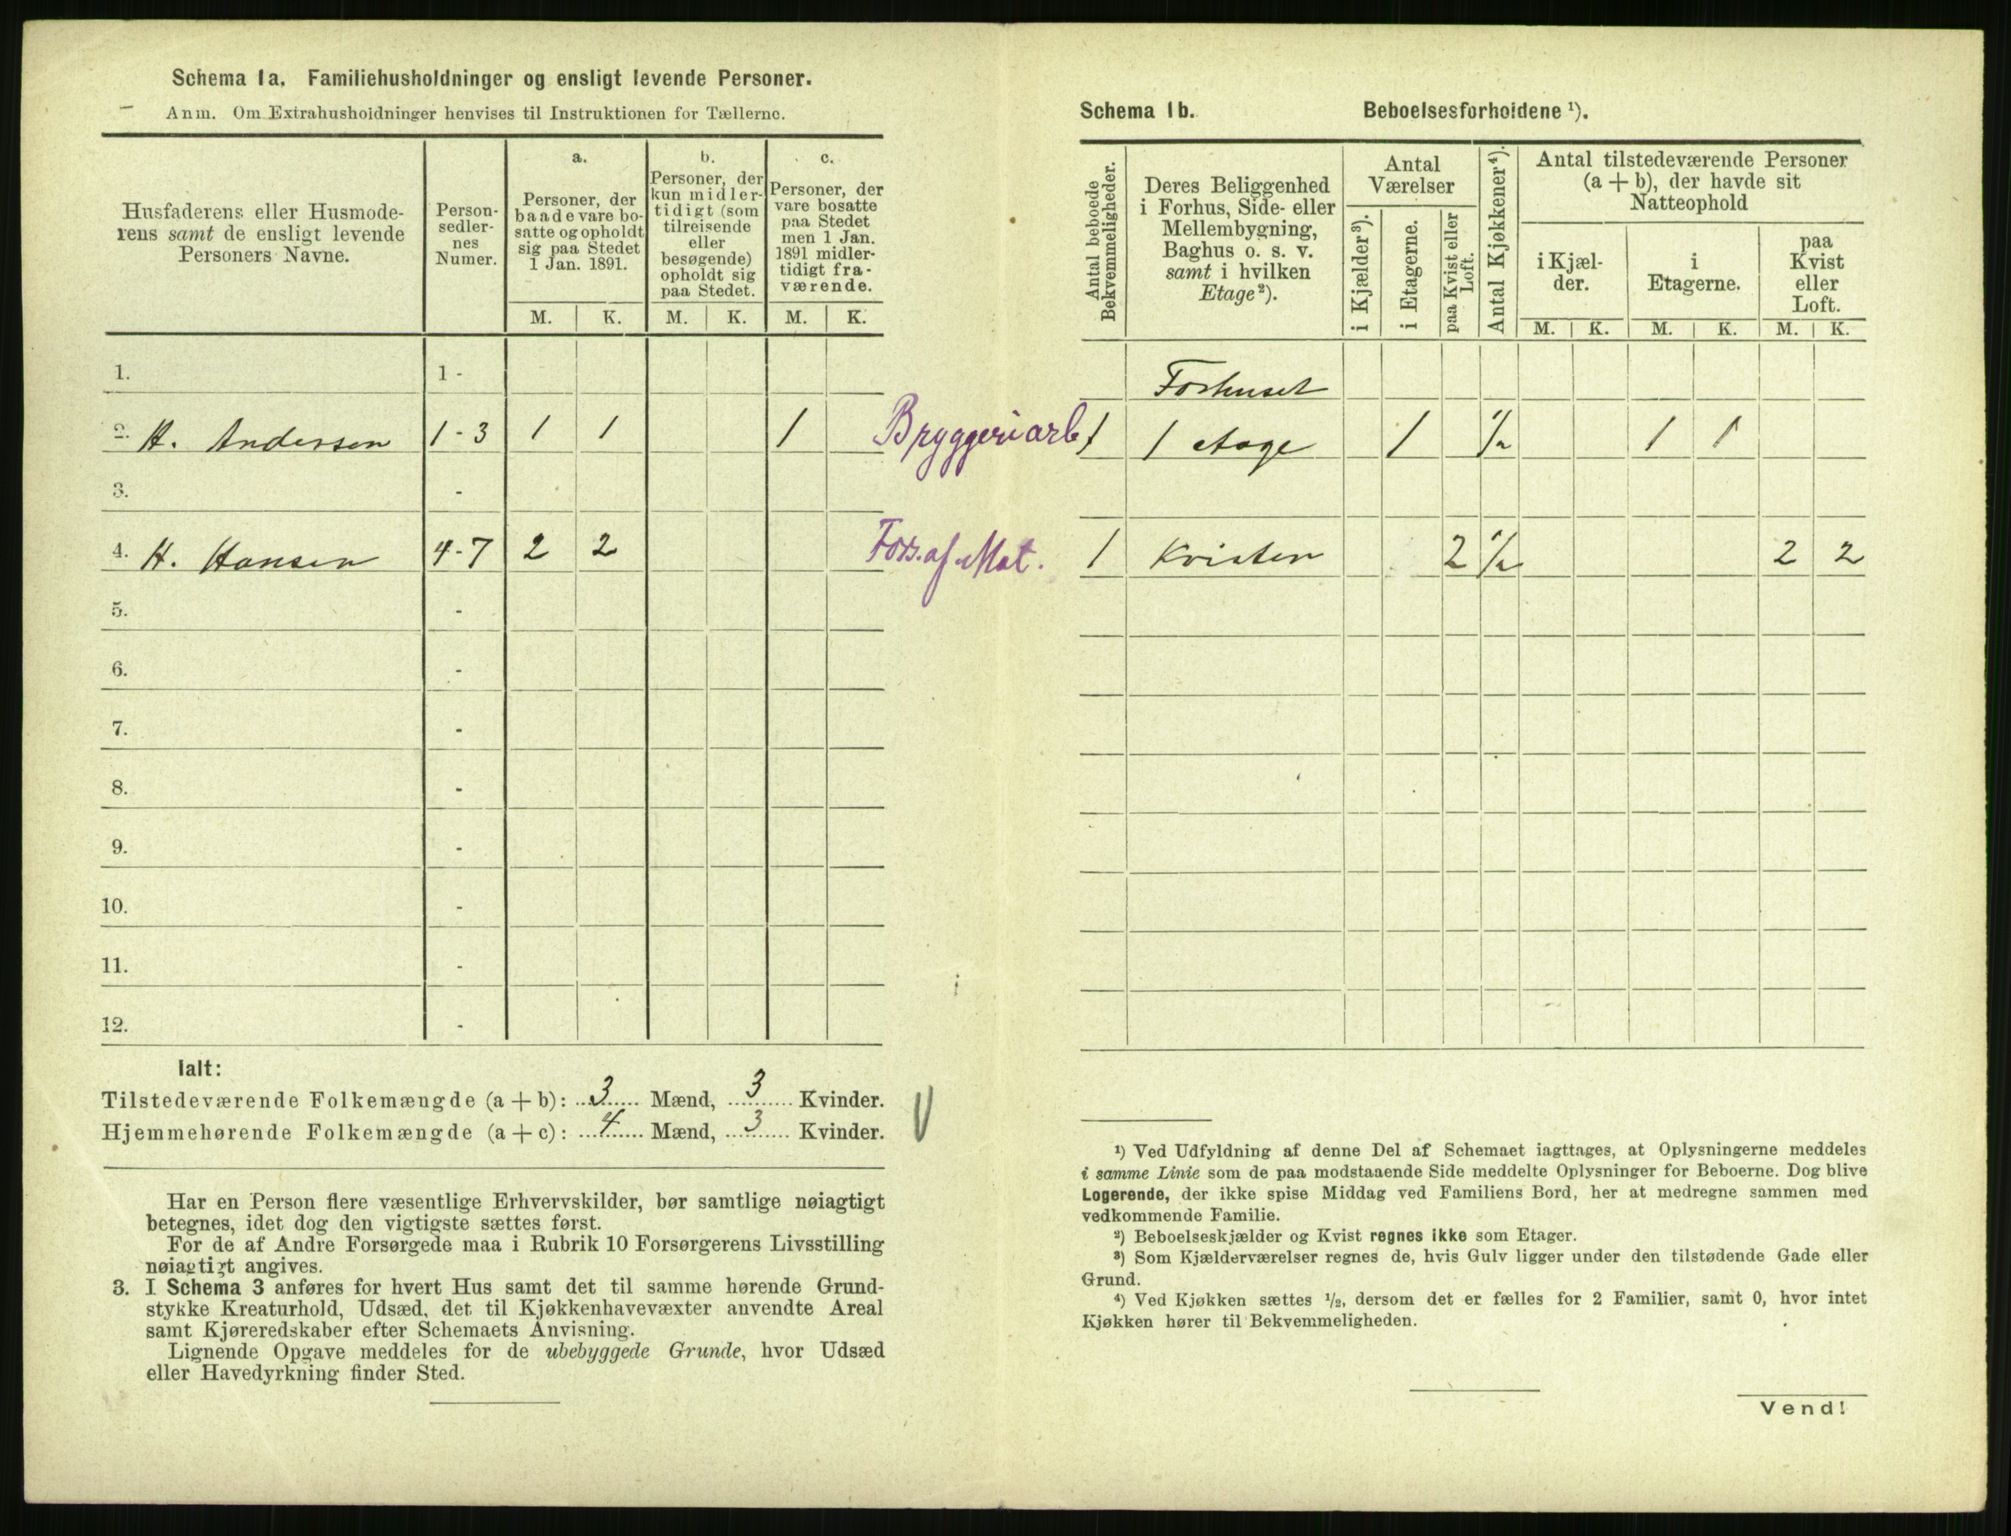 Schema 1a. Familiehusholdninger og ensligt levende Personer.
Anm. Om Extrahusholdninger henvises til Instruktionen for Tællerne.
Husfaderens eller Husmode-
rens samt de ensligt levende
Personers Navne.
Person-
sedler-
nes
Numer.
a.
Personer, der
baade vare bo-
satte og opholdt
sig paa Stedet
1 Jan. 1891.
b.
Personer, der
kun midler-
tidigt (som
tilreisende
eller
besøgende)
opholdt sig
paa Stedet.
c.
Personer, der
vare bosatte
paa Stedet
men 1 Jan.
1891 midler-
tidigt fra-
værende.
M. K. M. K. M. K.
1. 1 -
2. H. Andersen 1 - 3 1 1 1 Bryggeriarb.
3. -
4. H. Hansen 4 - 7 2 2 Fors. af Mat.
5. -
6. -
7. -
8. -
9. -
10. -
11. -
12. -
Ialt:
Tilstedeværende Folkemængde (a + b): 3 Mænd, 3 Kvinder.
Hjemmehørende Folkemængde (a + c): 4 Mænd, 3 Kvinder.
Har en Person flere væsentlige Erhvervskilder, bør samtlige nøiagtigt
betegnes, idet dog den vigtigste sættes først.
For de af Andre Forsørgede maa i Rubrik 10 Forsørgerens Livsstilling
nøiagtigt angives.
3. I Schema 3 anføres for hvert Hus samt det til samme hørende Grund-
stykke Kreaturhold, Udsæd, det til Kjøkkenhavevæxter anvendte Areal
samt Kjøreredskaber efter Schemaets Anvisning.
Lignende Opgave meddeles for de ubebyggede Grunde, hvor Udsæd
eller Havedyrkning finder Sted.
Schema 1b. Beboelsesforholdene ¹).
Antal beboede
Bekvemmeligheder.
Deres Beliggenhed
i Forhus, Side- eller
Mellembygning,
Baghus o. s. v.
samt i hvilken
Etage²).
Antal
Værelser
i Kjælder³).
i Etagerne.
paa Kvist eller
Loft.
Antal Kjøkkener⁴).
Antal tilstedeværende Personer
(a + b), der havde sit
Natteophold
i Kjæl-
der.
i
Etagerne.
paa
Kvist
eller
Loft.
M. K. M. K. M. K.
Forhuset
1 1 etage 1 ½ 1 1
1 Kvisten 2 ½ 2 2
¹) Ved Udfyldning af denne Del af Schemaet iagttages, at Oplysningerne meddeles
i samme Linie som de paa modstaaende Side meddelte Oplysninger for Beboerne. Dog blive
Logerende, der ikke spise Middag ved Familiens Bord, her at medregne sammen med
vedkommende Familie.
²) Beboelseskjælder og Kvist regnes ikke som Etager.
³) Som Kjælderværelser regnes de, hvis Gulv ligger under den tilstødende Gade eller
Grund.
⁴) Ved Kjøkken sættes ½, dersom det er fælles for 2 Familier, samt 0, hvor intet
Kjøkken hører til Bekvemmeligheden.
Vend!